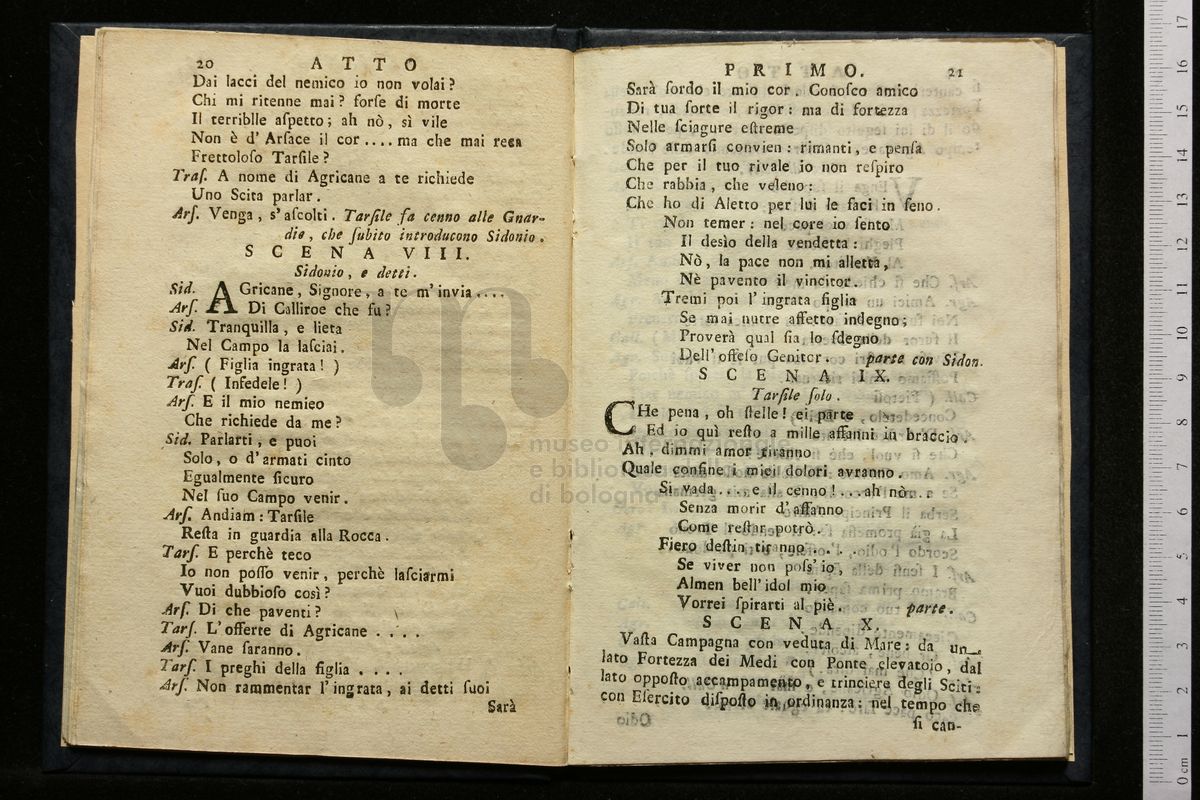 20 A T T O
Dai lacci del nemico io non volai?
Chi mi ritenne mai? forſe di morte
Il terriblle aſpetto; ah nò, sì vile
Non è d' Arſace il cor .... ma che mai reca
Frettoloſo Tarſile?
Traſ. A nome di Agricane a te richiede
Uno Scita parlar.
Arſ. Venga, s' aſcolti. Tarſile fa cenno alle Gnar-
die, che ſubito introducono Sidonio.
S C E N A VIII.
Sidonio, e detti.
Sid. AGricane, Signore, a te m' invia ....
Arſ. Di Calliroe che fu?
Sid. Tranquilla, e lieta
Nel Campo la laſciai.
Arſ. ( Figlia ingrata! )
Traſ. ( Infedele! )
Arſ. E il mio nemieo
Che richiede da me?
Sid. Parlarti, e puoi
Solo, o d' armati cinto
Egualmente ſicuro
Nel ſuo Campo venir.
Arſ. Andiam: Tarſile
Reſta in guardia alla Rocca.
Tarſ. E perchè teco
Io non poſſo venir, perchè laſciarmi
Vuoi dubbioſo così?
Arſ. Di che paventi?
Tarſ. L' offerte di Agricane . . . .
Arſ. Vane ſaranno.
Tarſ. I preghi della figlia . . . .
Arſ. Non rammentar l' ingrata, ai detti ſuoi
Sarà
P R I M O. 21
Sarà ſordo il mio cor. Conoſco amico
Di tua ſorte il rigor: ma di fortezza
Nelle ſciagure eſtreme
Solo armarſi convien: rimanti, e penſa
Che per il tuo rivale io non reſpiro
Che rabbia, che veleno:
Che ho di Aletto per lui le faci in ſeno.
Non temer: nel core io ſento
Il desìo della vendetta:
Nò, la pace non mi alletta,
Nè pavento il vincitor.
Tremi poi l' ingrata figlia
Se mai nutre affetto indegno;
Proverà qual ſia lo ſdegno
Dell' offeſo Genitor. parte con Sidon.
S C E N A IX.
Tarſile ſolo.
CHe pena, oh ſtelle! ei parte
Ed io quì reſto a mille affanni in braccio.
Ah, dimmi amor tiranno
Quale confine i miei dolori avranno.
Si vada .... e il cenno! ... ah nò...
Senza morir d' affanno
Come reſtar potrò.
Fiero deſtin tiranno . . . .
Se viver non poſs' io,
Almen bell' idol mio
Vorrei ſpirarti al piè. parte.
S C E N A X.
Vaſta Campagna con veduta di Mare: da un
lato Fortezza dei Medi con Ponte elevatoio, dal
lato oppoſto accampamento, e trinciere degli Sciti:
con Eſercito diſpoſto in ordinanza: nel tempo che
ſi can-
museo internazionale
e biblio
di bologna
0 cm 1 2 3 4 5 6 7 8 9 10 11 12 13 14 15 16 17